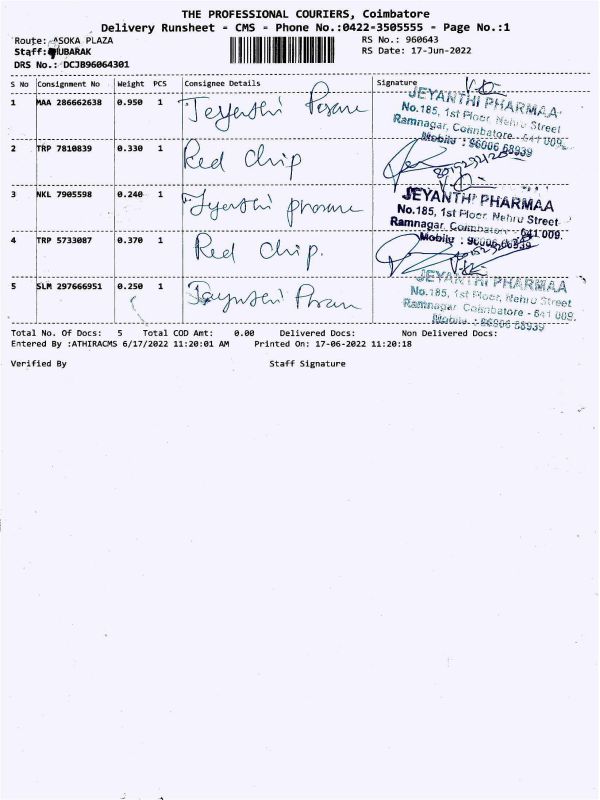 THE PROFESSIONAL COURIERS, Coimbatore
Delivery Runsheet - CMS - Phone No.:0422-3505555 - Page No.:1
Route: ASOKA PLAZA RS No.: 960643
Staff: MUBARAK RS Date: 17-Jun-2022
DRS No.: DCJB96064301
S No Consignment No Weight PCS Consignee Details Signature
1 MAA 286662638 0.950 1
JEYANTHI PHARMAA
No.185, 1st Floor, Nehru Street
Ramnagar, Coimbatore - 641 009.
Mobile : 96006 68939
2 TRP 7810839 0.330 1 Red Chip
3 NKL 7905598 0.240 1
JEYANTHI PHARMAA
No.185, 1st Floor, Nehru Street
Ramnagar, Coimbatore - 641 009.
Mobile : 96006
4 TRP 5733087 0.370 1 Red Chip.
5 SLM 297666951 0.250 1
JEYANTHI PHARMAA
No.185, 1st Floor, Nehru Street
Ramnagar, Coimbatore - 641 009.
Mobile : 96006 68939
Total No. Of Docs: 5 Total COD Amt: 0.00 Delivered Docs: Non Delivered Docs:
Entered By :ATHIRACMS 6/17/2022 11:20:01 AM Printed On: 17-06-2022 11:20:18
Verified By Staff Signature